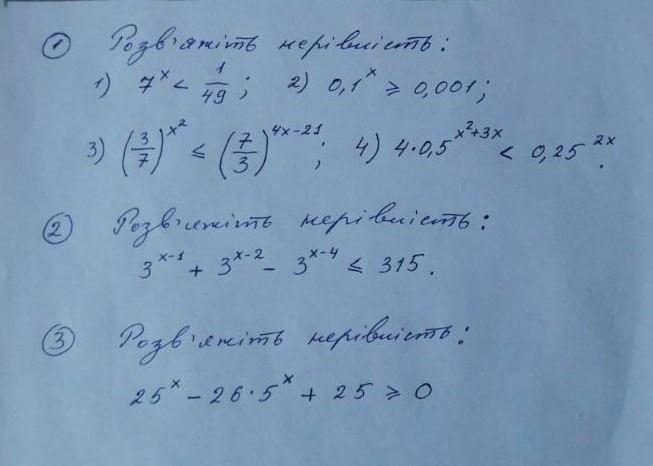 ① Розв'яжіть нерівність:
1) 7^x < 1/49; 2) 0,1^x ⩾ 0,001;
3) (3/7)^(x^2) ⩽ (7/3)^(4x-21); 4) 4·0,5^(x^2+3x) < 0,25^(2x).
② Розв'яжіть нерівність:
3^(x-1) + 3^(x-2) - 3^(x-4) ⩽ 315.
③ Розв'яжіть нерівність:
25^x - 26·5^x + 25 ⩾ 0